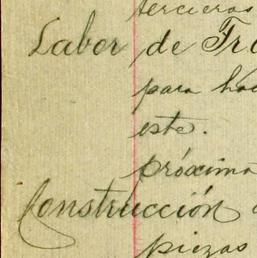 tercieras
Labor de Tra
para hac
este.
próxima
Construcción
piezas